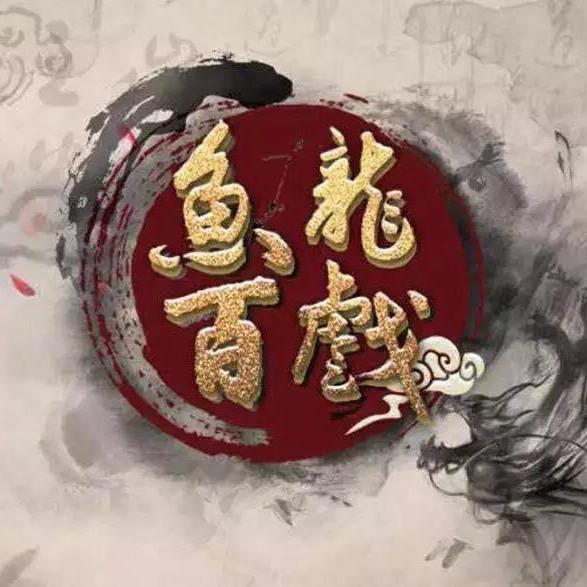 魚龍
百戲